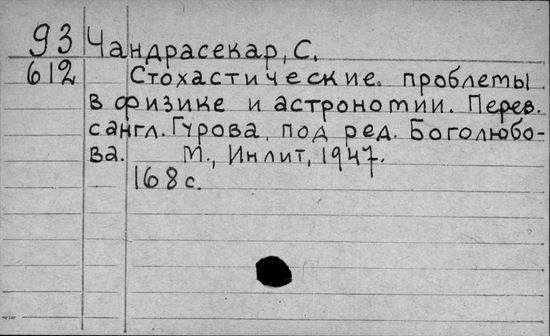 93 Чандрасекар, С.
612 Стохастические проблемы
в физике и астрономии. Перев.
с англ. Гурова, под ред. Боголюбо-
ва. М., Инлит, 1947.
168 с.